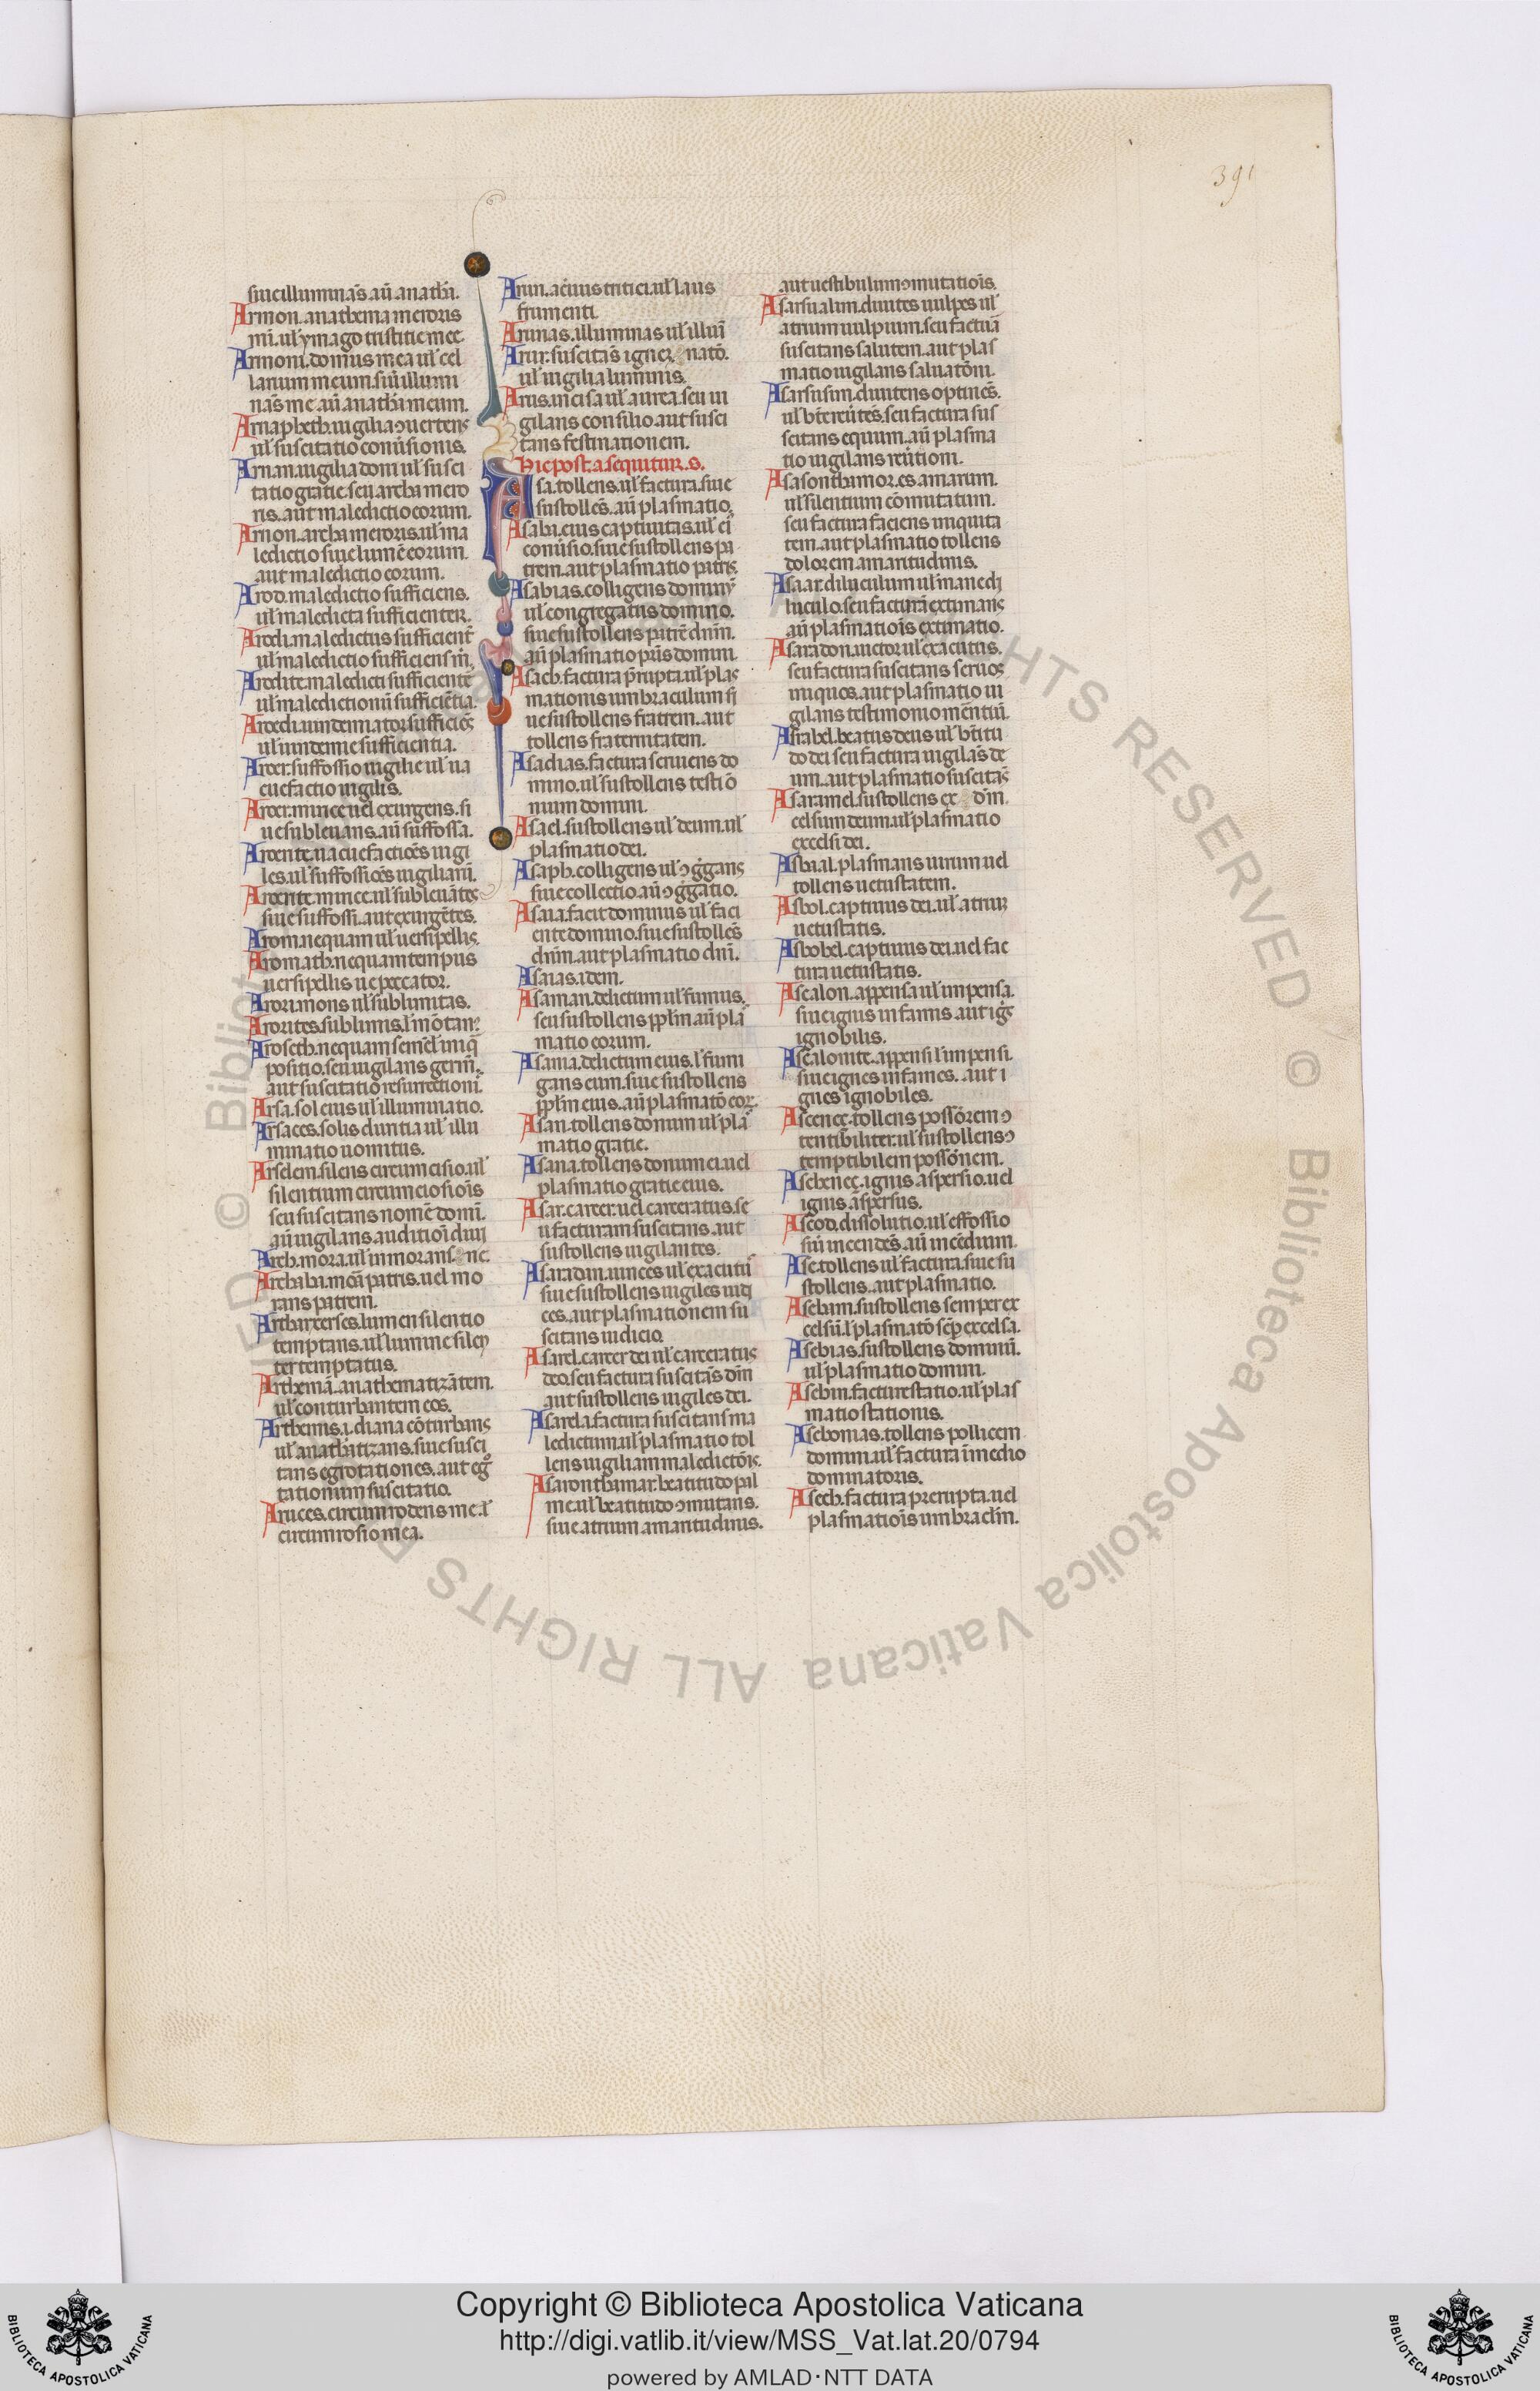 391
siue illuminas̄ aū anath̄i.
Armon. anathema meroris
mī. ul̓ ymago tristitie mee.
Armoni. domus mea ul̓ cel
larium meum. siū illumi
nas̄ me aū anath̄a meum.
Arnapheth. uigilia ꝯuertens
ul̓ suscitatio conūsionis.
Arnan. uigilia doni ul̓ susci
tatio gratie. seu archa mero
ris. aut maledictio eorum.
Arnon. archa meroris. ul̓ ma
ledictio siue lumē eorum.
aut maledictio eorum.
Arod. maledictio sufficiens.
ul̓ maledicta sufficienter.
Arodi. maledictus sufficient̄
ul̓ maledictio sufficiens m̄.
Arodite. maledicti sufficiente
ul̓ maledictionū sufficiētia.
Aroedi. uindemiator sufficiēs
ul̓ uindemie sufficientia.
Aroer. suffossio uigilie ul̓ ua
cuefactio uigilis.
Aroer. mirice uel exurgens. si
ue subleuans. aū suffossa.
Aroerite. uacuefactioēs uigi
les. ul̓ suffossioēs uigiliarū.
Aroerite. mirice. ul̓ subleuātes
siue suffossi. aut exurgētes.
Arom. nequam ul̓ uersipellis.
Aromath. nequam tempus
uersipellis ue peccator.
Arori. mons ul̓ sublimitas.
Arorites. sublimis. l̓ mōtan9
Aroseth. nequam semēl̓ iniq̄
positio. seu uigilans germ̄.
aut suscitatio resurrectioni9.
Arsa. sol eius ul̓ illuminatio.
Arsaces. solis duritia ul̓ illu
minatio uomitus.
Arselem. silens circumcisio. ul̓
silentium circumcisiois̄
seu suscitans nomē domī.
aū uigilans auditioī diuī
Areb. mora. ul̓ in morans. ne.
Archaba. morā patris. uel mo
rans patrem.
Artharxerses. lumen silentio
temptans. ul̓ lumine silen
ter temptatus.
Arthemā. anathematizātem.
ul̓ conturbantem eos.
Arthemis. i. diana cōturbans
ul̓ anath̄atizans. siue susci
tans egrotationes. aut egr̊
tationum suscitatio.
Aruces. circumrodens me. l̓
circumrosio mea.
Arun. aceruus tritici. ul̓ laus
frumenti.
Arunas. illuminas ul̓ illuī
Arur. suscitas̄ ignez. natō.
ul̓ uigilia luminis.
Arus. incisa ul̓ aurea. seu ui
gilans consilio. aut susci
tans festinationem.
Hic post. a. sequitur. s.
Asa. tollens. ul̓ factura. siue
sustollēs. aū plasmatio.
Asabi. eius captiuitas. ul̓ ei9
conūsio. siue sustollens pa
trem. aut plasmatio patris.
Asabias. colligens dominum
ul̓ congregatus domino.
siue sustollens patrē dn̄m.
aū plasmatio pr̄is domini.
Asach. factura p̄rupta. ul̓ plas
mationis umbraculum si
ue sustollens fratrem. aut
tollens fraternitatem.
Asadias. factura seruiens do
mino. ul̓ sustollens testiō
nium domini.
Asael. sustollens ul̓ deum. ul̓
plasmatio dei.
Asaph. colligens ul̓ ꝯgr̄gans
siue collectio. aū ꝯgr̄gatio.
Asaia. facit dominus ul̓ faci
ente domino. siue sustollēs
dn̄m. aut plasmatio dnī.
Asaias. idem.
Asaman. delictum ul̓ fumus.
seu sustollens pp̄l̓m aū plas̄
matio eorum.
Asama. delictum eius. l̓ fumi
gans eum. siue sustollens
pp̄l̓m eius. aū plasmatō eoꝝ.
Asan. tollens donum ul̓ plas̄
matio gratie.
Asana. tollens donum ei. uel
plasmatio gratie eius.
Asar. carcer. uel carceratus. se
u facturam suscitans. aut
sustollens uigilantes.
Asaradan. uinces ul̓ exacutū
siue sustollens uigiles iudi
ces. aut plasmationem su
scitans iudicio.
Asarel. carcer dei ul̓ carceratus
deo. seu factura suscitās dm̄
aut sustollens uigiles dei.
Asarela. factura suscitans ma
ledictum. ul̓ plasmatio tol
lens uigiliam maledictōis.
Asaronthamar. beatitudo pal
me. ul̓ beatitudo ꝯmutans.
siue atrium amaritudinis.
aut uestibulum ꝯmutatiois̄.
Asarsualim. diuites uulpes ul̓
atrium uulpium. seu facturā
suscitans salutem. aut plas
matio uigilans saluatōm.
Asarsusim. diuitens optinēs.
ul̓ b̄tereutēs. seu factura sus
scitans equum. aū plasma
tio uigilans reūtiom.
Asasonthamor. es amarum.
ul̓ silentium cōmutatum.
seu factura faciens iniquita
tem. aut plasmatio tollens
dolorem amaritudinis.
Asaar. diluculum ul̓ mane di
luculo. seu facturā extimans
aū plasmatiois̄ extimatio.
Asaradon. uictor ul̓ exacutus.
seu factura suscitans seruos
iniquos. aut plasmatio ui
gilans testimonio mēntiū.
Asrabel. beatus deus ul̓ b̄titu
do dei seu factura uigilās de
um. aut plasmatio suscitās
Asaramel. sustollens ex dm̄.
celsum deum. ul̓ plasmatio
excelsi dei.
Asbaal. plasmans uirum uel
tollens uetustatem.
Asbol. captiuus dei. ul̓ atriuz
uetustatis.
Asbobel. captiuus dei. uel fac
tura uetustatis.
Ascalon. appensa ul̓ impensa.
siue ignis infamis. aut igs̄
ignobilis.
Ascalonite. appensi l̓ impensi.
siue ignes infames. aut i
gnes ignobiles.
Ascenez. tollens possōrem ꝯ
tentibiliter. ul̓ sustollens ꝯ
temptibilem possōnem.
Ascenez. ignis aspersio. uel
ignis aspersus.
Ascod. dissolutio. ul̓ effossio
siū incendēs. aū incēdium.
Ase. tollens ul̓ factura. siue su
stollens. aut plasmatio.
Asebam. sustollens semper ex
celsū. l̓ plasmatō sēp̄ excelsa.
Asebias. sustollens dominū.
ul̓ plasmatio domini.
Asebin. facture statio. ul̓ plas
matio stationis.
Asebonias. tollens pollicem
domini. ul̓ factura ī medio
dominatoris.
Asech. factura prerupta. uel
plasmatiois̄ umbracl̓m.
© Biblioteca Apostolica Vaticana ALL RIGHTS RESERVED
Copyright © Biblioteca Apostolica Vaticana
http://digi.vatlib.it/view/MSS_Vat.lat.20/0794
powered by AMLAD·NTT DATA
BIBLIOTECA APOSTOLICA VATICANA
BIBLIOTECA APOSTOLICA VATICANA